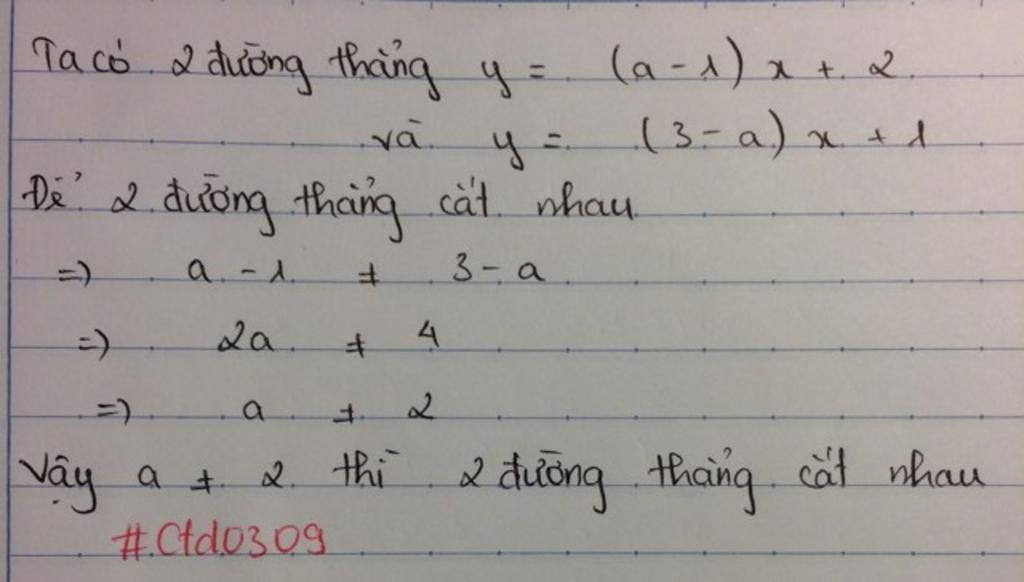 Ta có 2 đường thẳng y = (a - 1) x + 2
và y = (3 - a) x + 1
Để 2 đường thẳng cắt nhau
=) a - 1 ≠ 3 - a
=) 2a ≠ 4
=) a ≠ 2
Vậy a ≠ 2 thì 2 đường thẳng cắt nhau
#Ctd0309